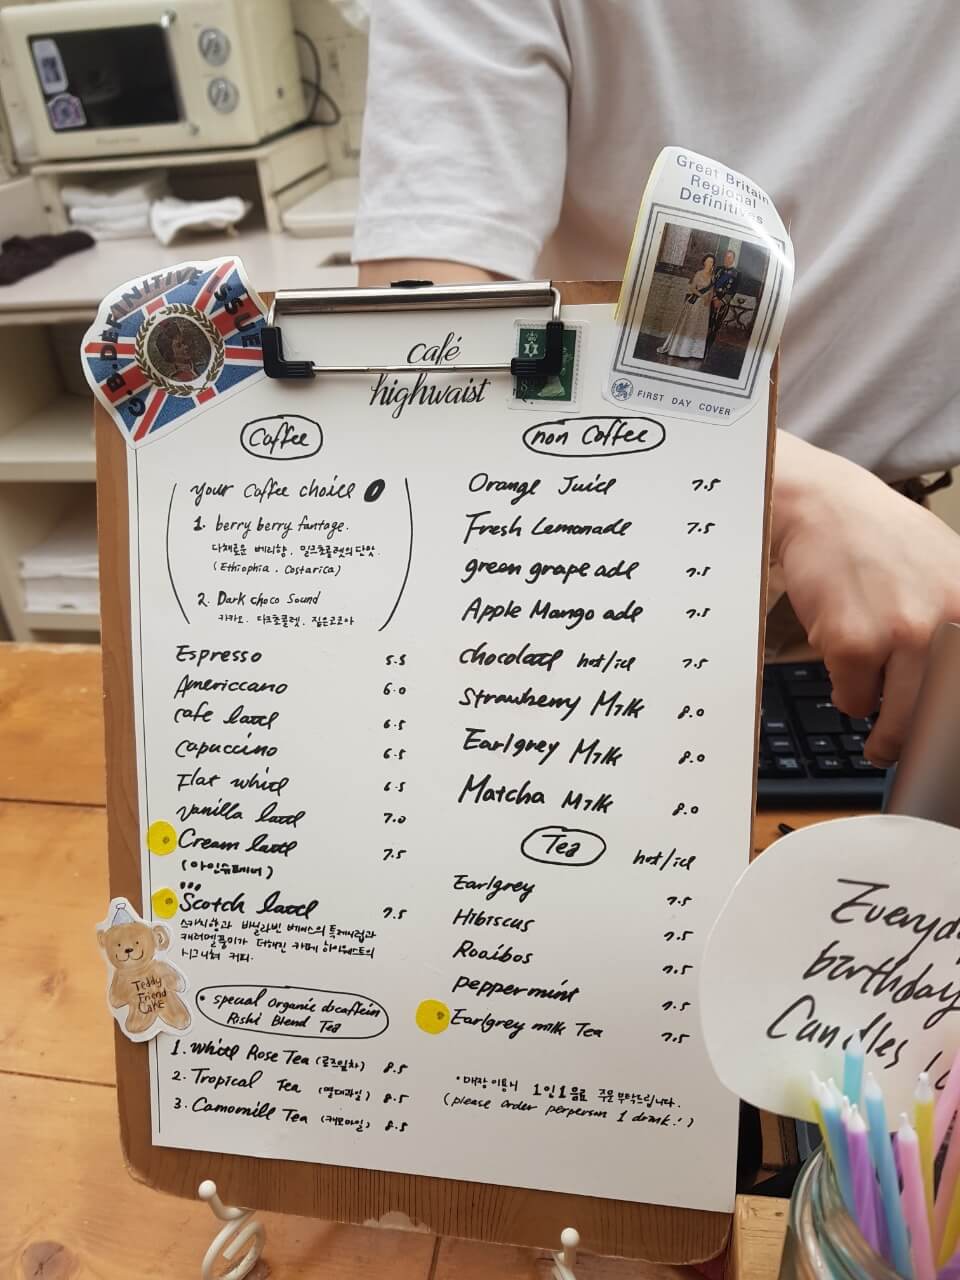 Great Britain
Regional
Definitives
FIRST DAY COVER
G.B. DEFINITIVE ISSUE
café
highwaist
Coffee
your coffee choice
1. berry berry fantage.
다채로운 베리향, 밀크초콜렛의 단맛.
(Ethiophia, Costarica)
2. Dark choco Sound
카카오, 다크초콜렛, 짙은코코아
Espresso 5.5
Americcano 6.0
cafe latte 6.5
capuccino 6.5
Flat white 6.5
vanilla latte 7.0
Cream latte 7.5
(아인슈페너)
Scotch latte 7.5
스카치향과 바닐라빈 베이스의 특제시럽과
캐러멜풍미가 더해진 카페 하이웨스트의
시그니쳐 커피.
• special organic decaffein
Rishi Blend Tea
1. White Rose Tea (로즈잎차) 8.5
2. Tropical Tea (열대과일) 8.5
3. Camomile Tea (캐모마일) 8.5
non Coffee
Orange Juice 7.5
Fresh Lemonade 7.5
green grape ade 7.5
Apple Mango ade 7.5
chocolate hot/ice 7.5
Strawberry Milk 8.0
Earlgrey Milk 8.0
Matcha Milk 8.0
Tea hot/ice
Earlgrey 7.5
Hibiscus 7.5
Rooibos 7.5
peppermint 7.5
Earlgrey milk Tea 7.5
• 매장 이용시 1인 1음료 주문 부탁드립니다.
(please order perperson 1 drink!)
Teddy
Friend
Cake
Everyda
birthday
Candles